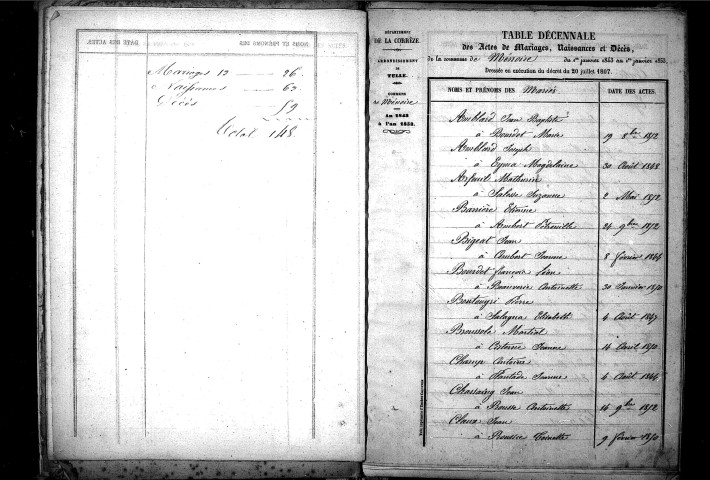 DATE DES ACTES. NOMS ET PRÉNOMS DES
Mariages 13 26
Naissances 63
Décès 59
Total 148
DÉPARTEMENT
DE LA CORRÈZE
ARRONDISSEMENT
DE TULLE.
COMMUNE
de Ménoire
An 1843
à l'an 1853.
TABLE DÉCENNALE
des Actes de Mariages, Naissances et Décès,
de la commune de Ménoire du 1er janvier 1843 au 1er janvier 1853.
Dressée en exécution du décret du 20 juillet 1807.
NOMS ET PRÉNOMS DES Mariés DATE DES ACTES.
Amblard Jean Baptiste
à Bourdet Marie 19 8bre 1852
Amblard Joseph
à Eyma Magdelaine 30 Août 1848
Arfeuil Mathurin
à Salesse Suzanne 2 Mai 1852
Barrière Etienne
à Ambert Pétronille 24 9bre 1852
Bigeat Jean
à Ambert Jeanne 8 février 1844
Bourdet françois Léon
à Beauverie Antoinette 30 Janvier 1850
Boutouyri Pierre
à Salagna Elisabeth 4 Août 1847
Broussole Martial
à Cisterne Jeanne 14 Avril 1850
Champ Antoine
à Plantade Jeanne 4 Août 1844
Chassaing Jean
à Bousse Antoinette 14 9bre 1852
Claux Jean
à Boussie Toinette 9 février 1850